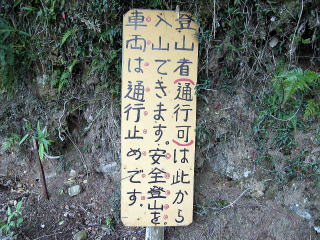 登山者(通行可)は此から
入山できます。安全登山を。
車両は通行止めです。